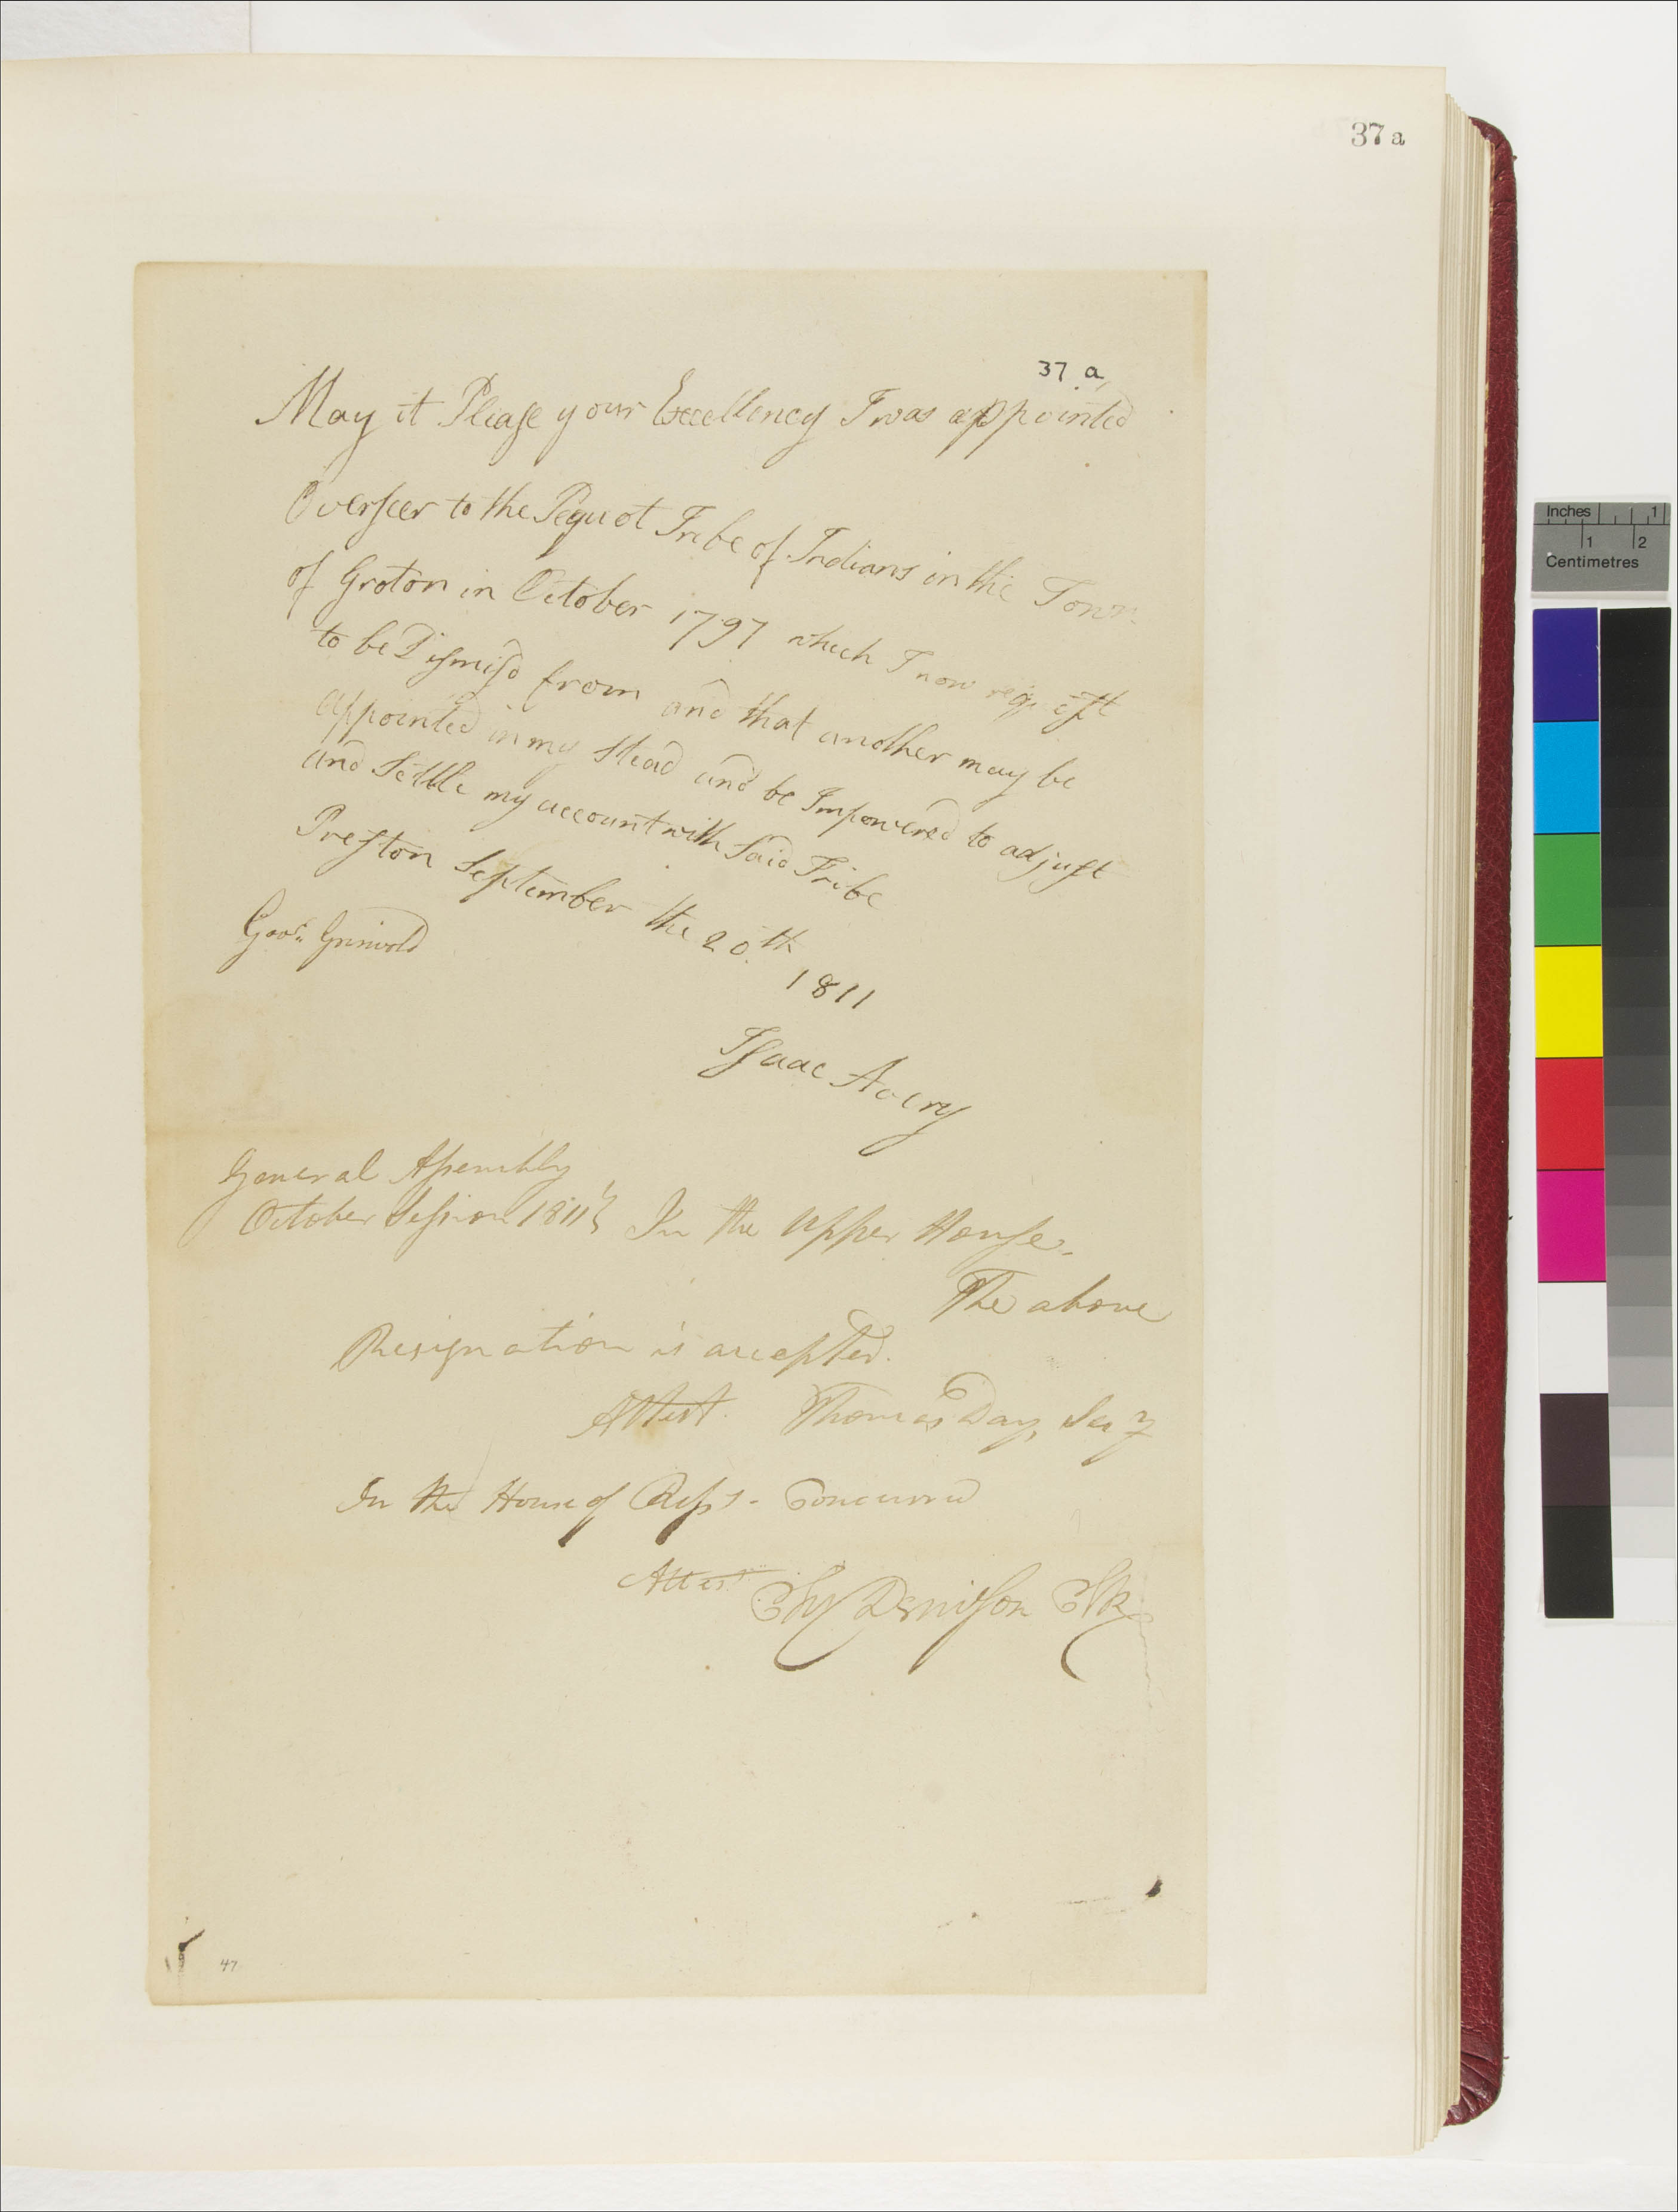 37 a
37 a
May it Please your Excellency I was appointed
Overseer to the Pequot Tribe of Indians in the Town
of Groton in October 1797 which I now reqest
to be Dismisd from and that another may be
appointed in my Stead and be Impowered to adjust
and Settle my account with Said Tribe
Preston September the 20.th
1811
Govr. Griswold
Isaac Avery
General Assembly
October Session 1811 } In the Upper House.
The above
Resignation is accepted.
Attest. Thomas Day, Secy
In the House of Reps - Concurred
Attest Chs Denison Clk
47
Inches 1
1 2
Centimetres